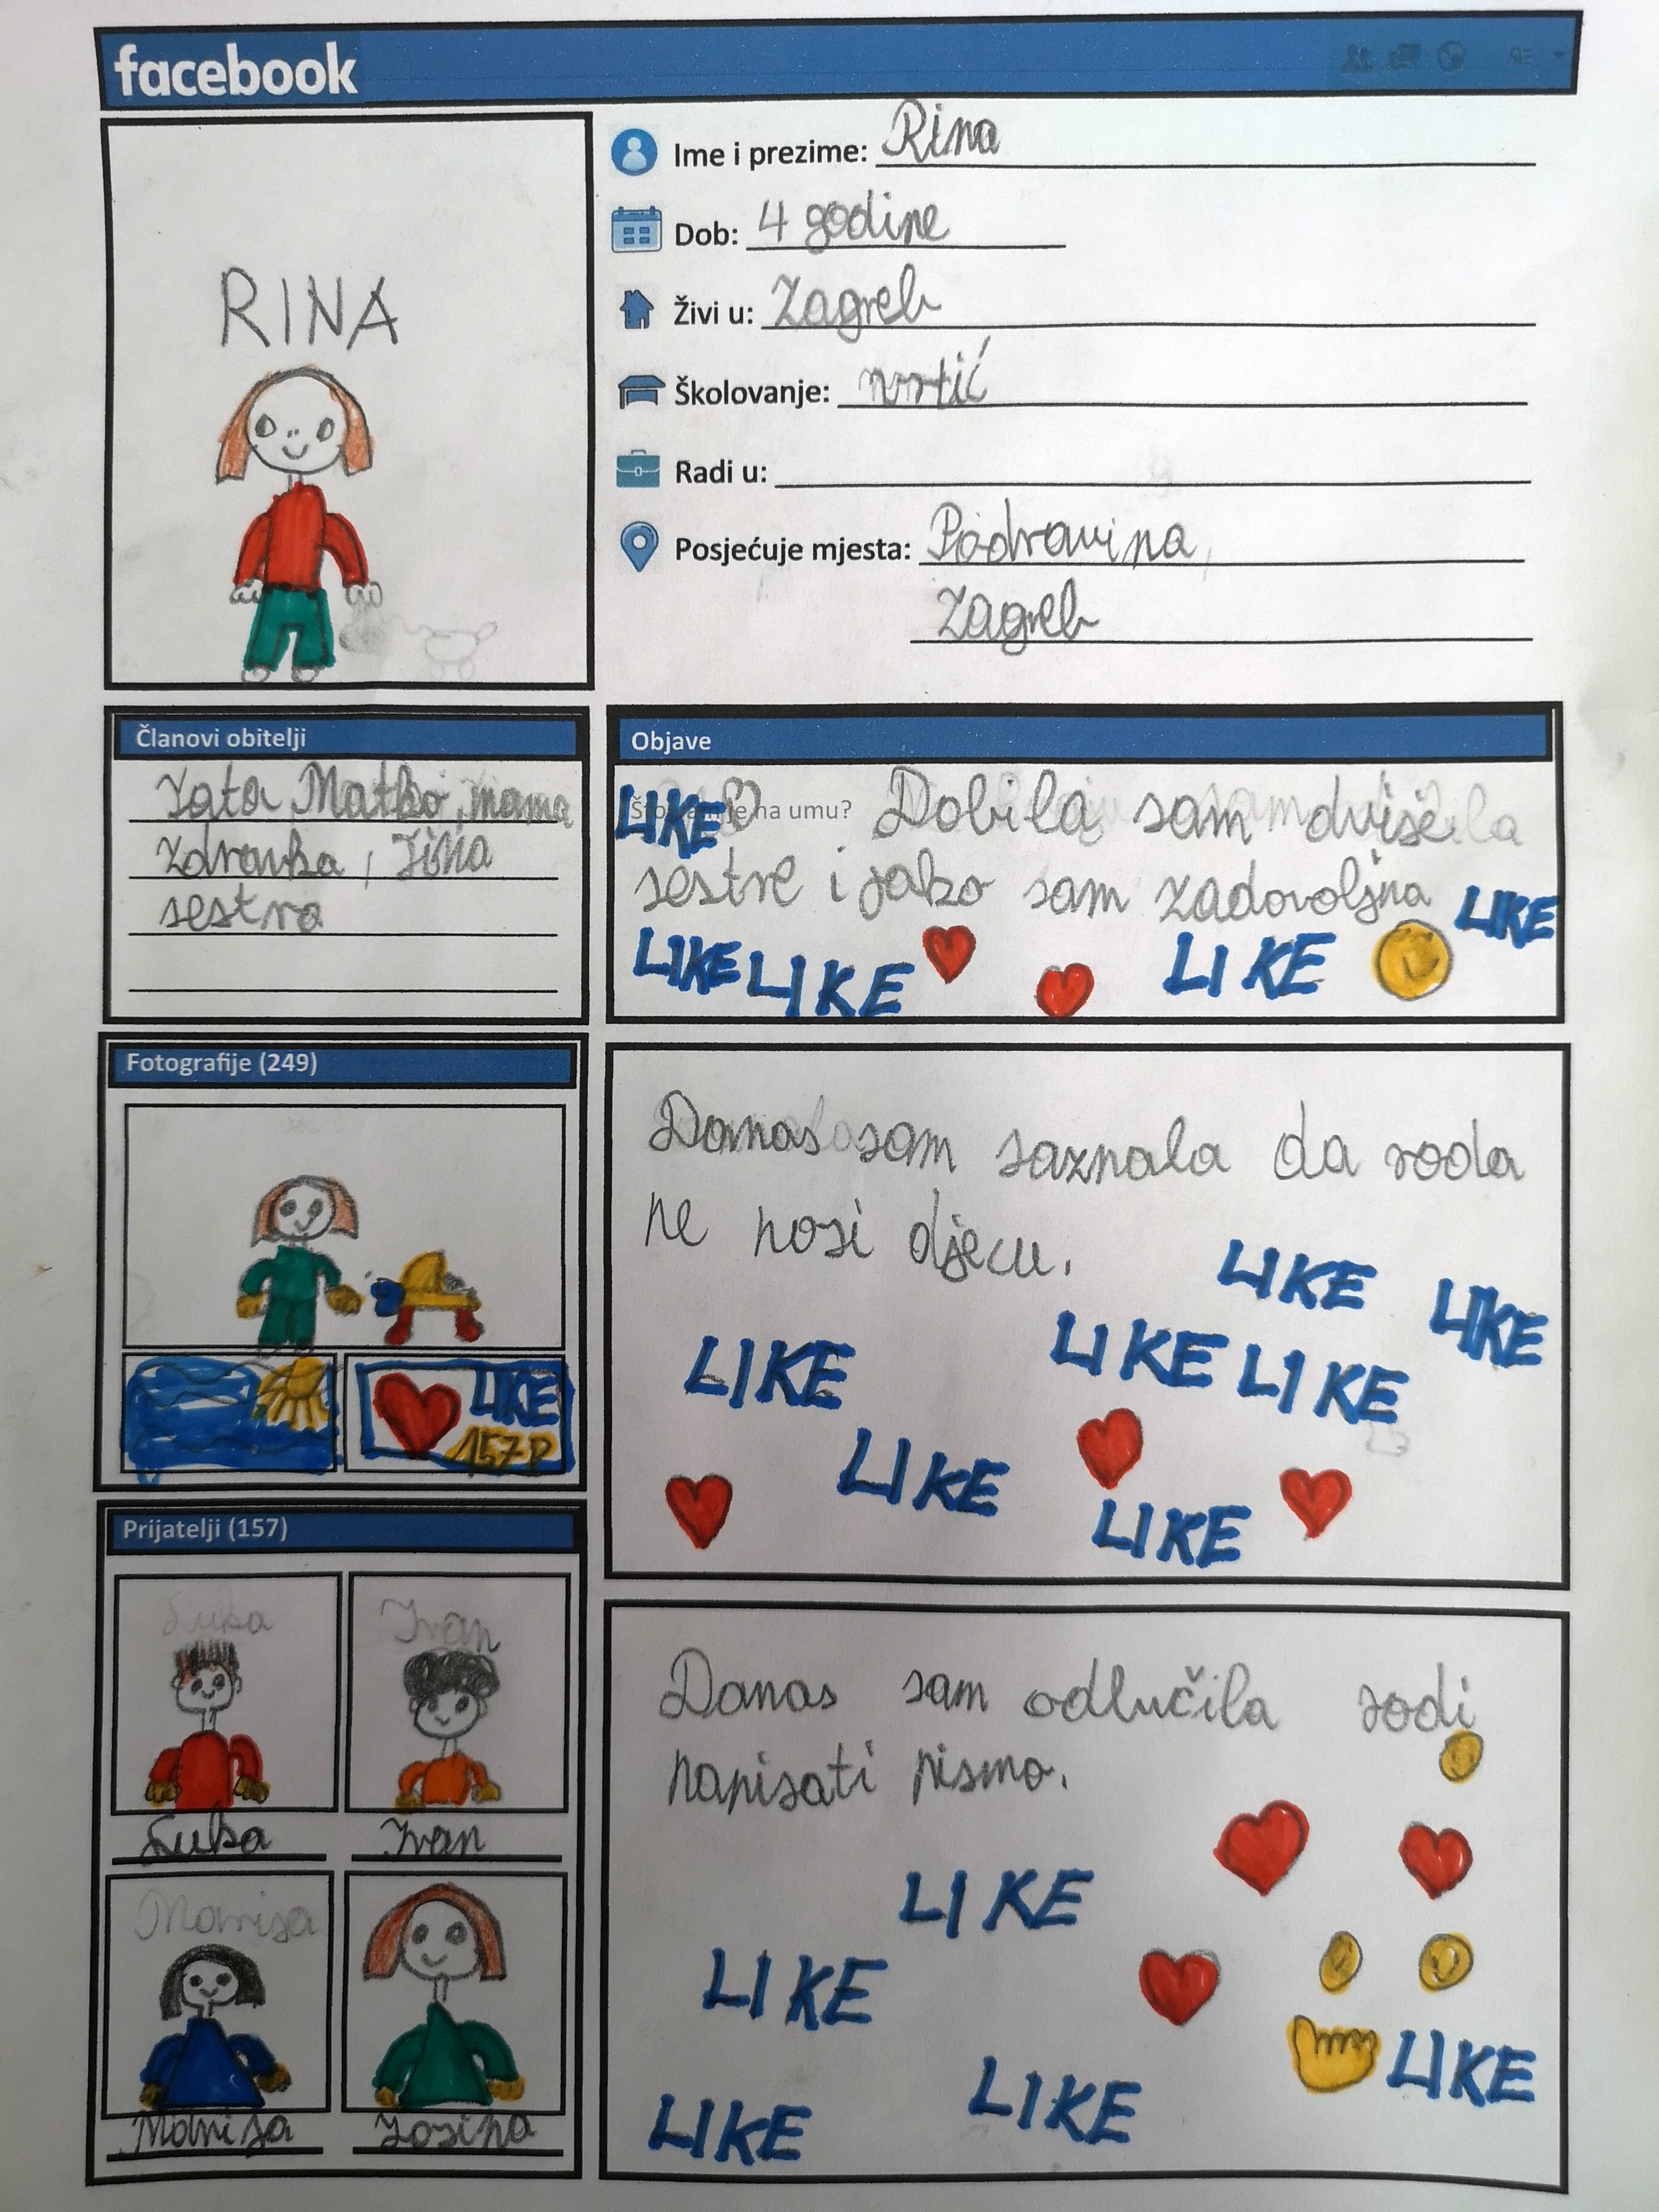 facebook
Ime i prezime: Rina
Dob: 4 godine
Živi u: Zagreb
Školovanje: vrtić
Radi u:
Posjećuje mjesta: Podravina,
Zagreb
RINA
Članovi obitelji
Tata Matko, mama
Zdravka,
sestra
Objave
LIKE na umu? Dobila sam dvije
sestre i jako sam zadovoljna LIKE
LIKE LIKE LIKE
Fotografije (249)
LIKE
157
Danas sam saznala da roda
ne nosi djecu.
LIKE
LIKE
LIKE LIKE LIKE
LIKE
LIKE
Prijatelji (157)
Luka Ivan
Luka Ivan
Marija
Marija Josipa
Danas sam odlučila rodi
napisati pismo.
LIKE
LIKE
LIKE
LIKE LIKE